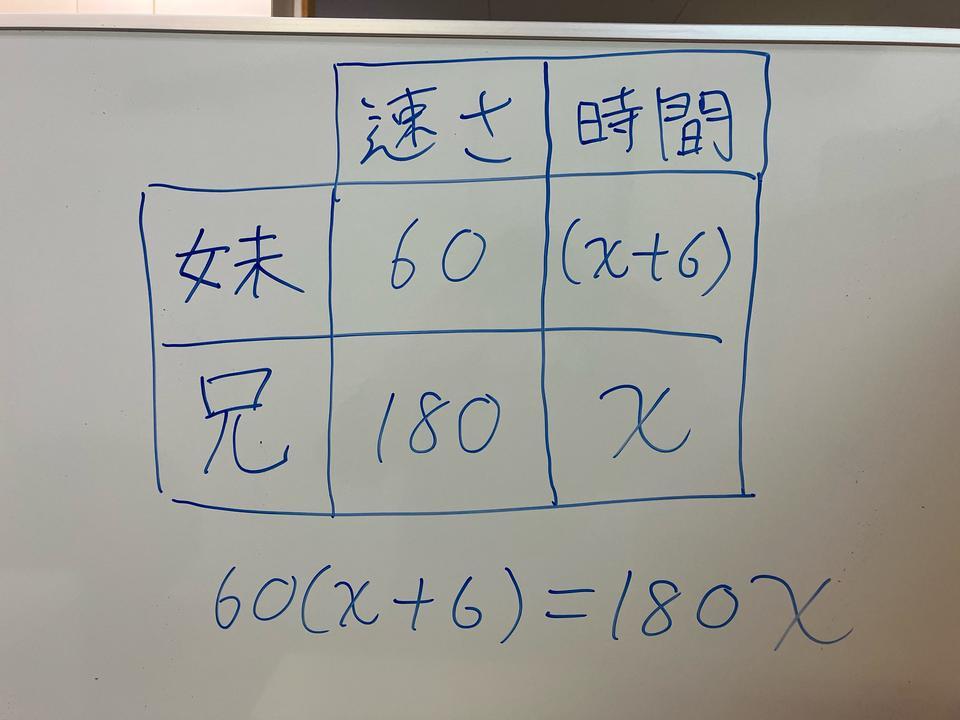 速さ 時間
妹 60 (x+6)
兄 180 x
60(x+6)=180x